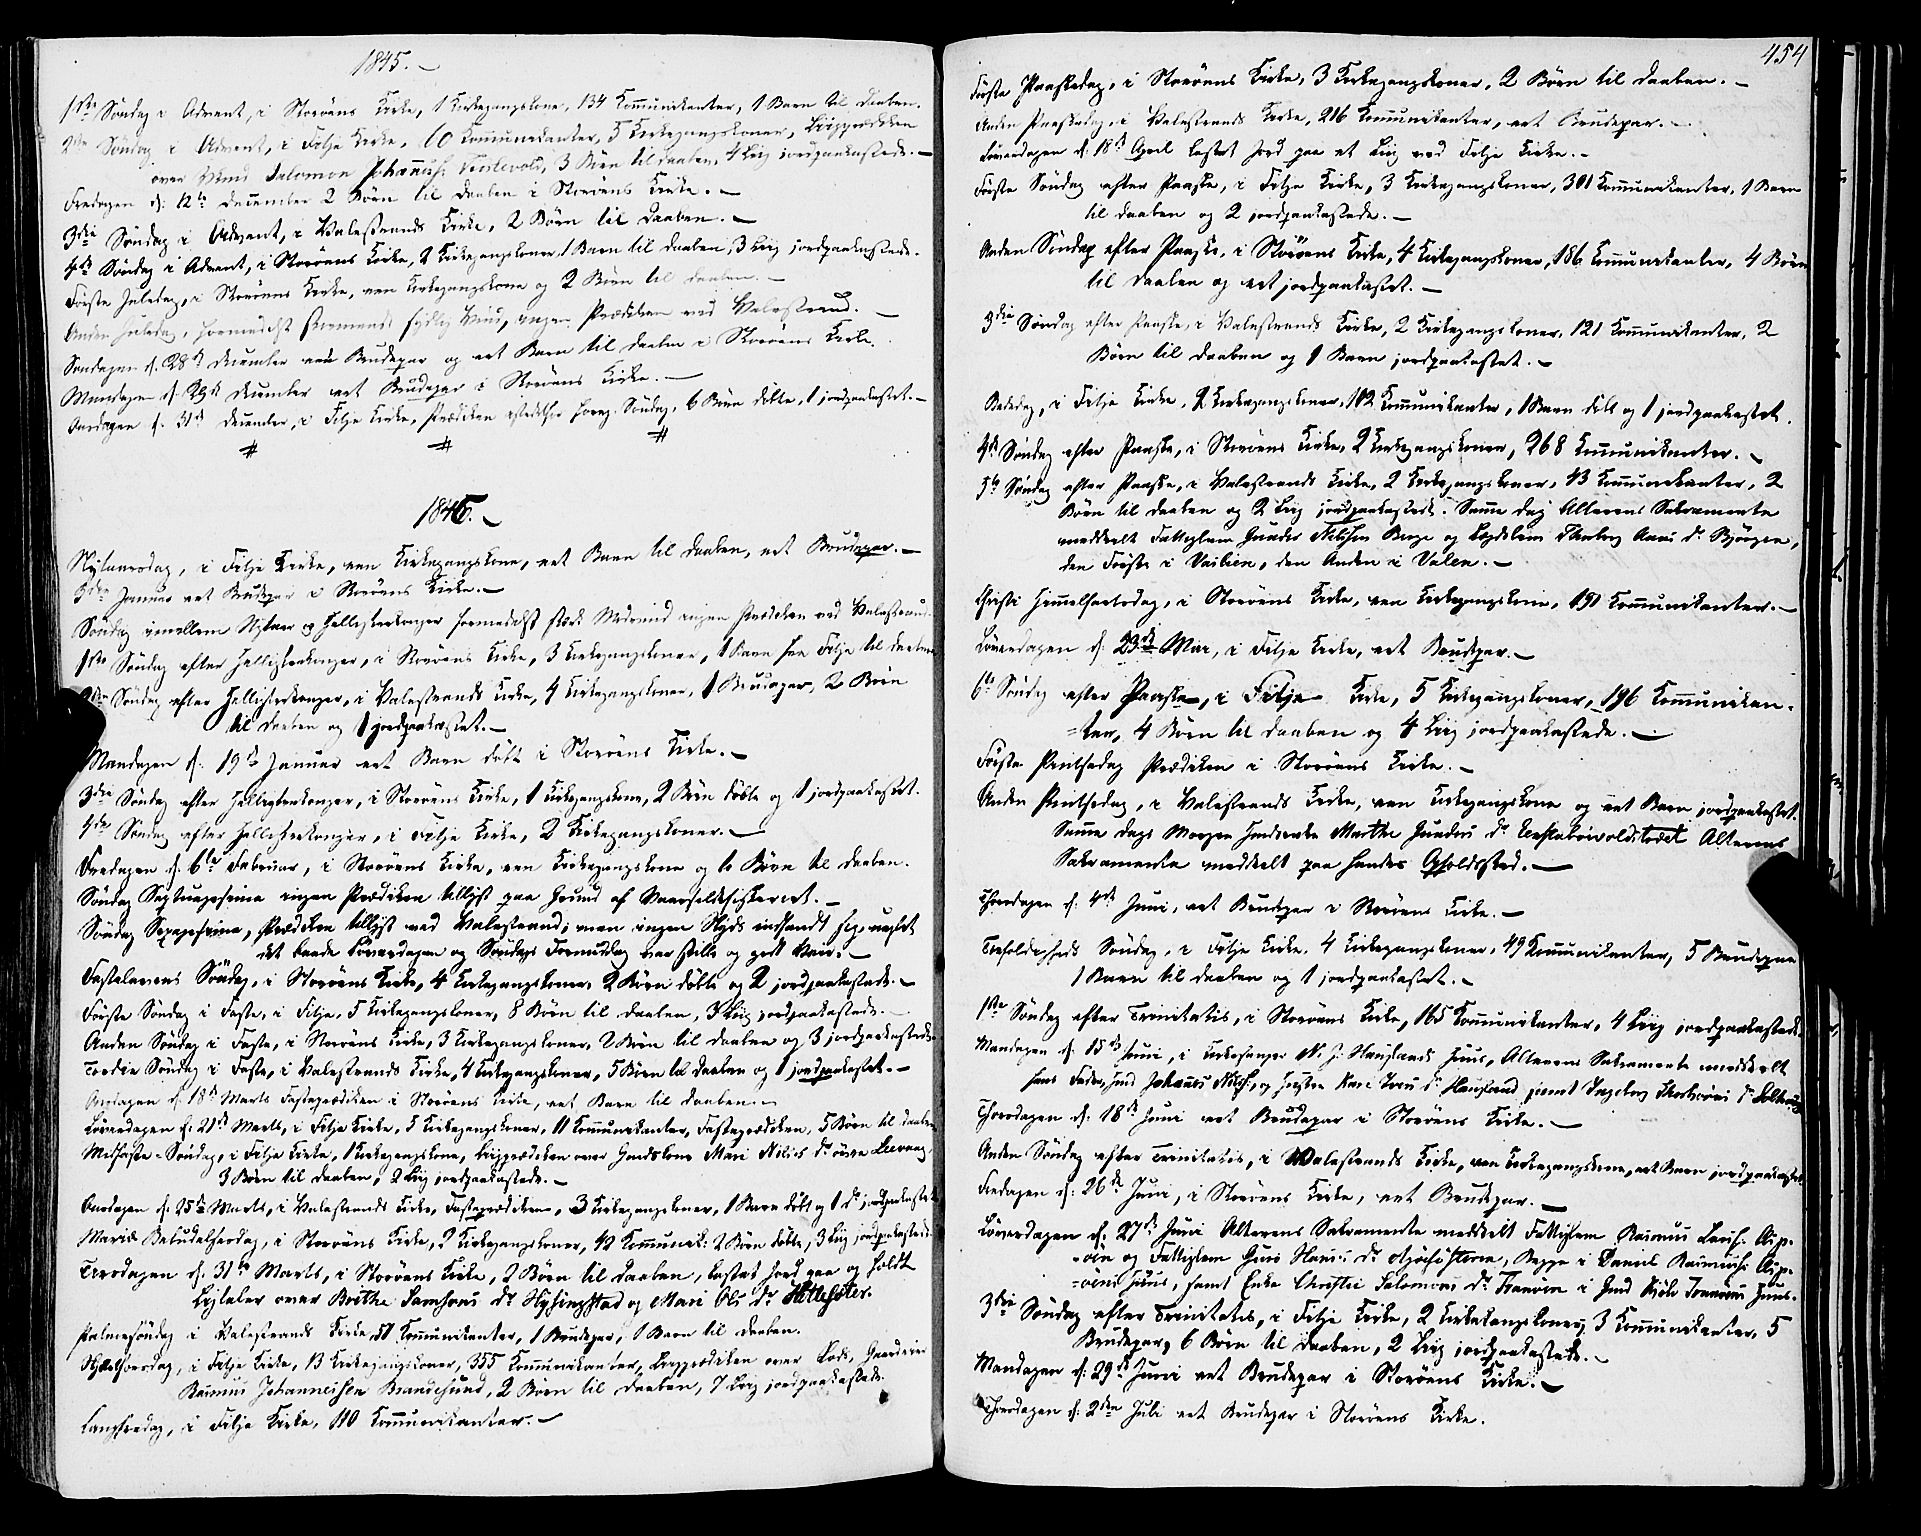 1845. –
1ste Søndag i Advent, i Storøens Kirke, 1 Kirkegangskone, 134 Kommunikanter, 1 Barn til Daaben.
2den Søndag i Advent, i Fitje Kirke, 60 Kommunikanter, 5 Kirkegangskoner, Liigprædiken
over Salomon Johannes: 3 Børn til Daaben, 4 Liig jordpaakastede. –
Fredagen d: 12te December 2 Børn til Daaben i Storøens Kirke. –
3die Søndag i Advent, i Valestrands Kirke, 2 Børn til Daaben. –
4de Søndag i Advent, i Storøens Kirke, 2 Kirkegangskoner, 1 Barn til Daaben, 3 Liig jordpaakastede.
Første Juledag, i Storøens Kirke, een Kirkegangskone og 2 Børn til Daaben. –
Anden Juledag, formedelst stormende sydlig Vind, ingen Prædiken ved Valestrand. –
Søndagen d. 28de December eet Brudepar og eet Barn til Daaben i Storøens Kirke.
Mandagen d. 29de December eet Brudepar i Storøens Kirke. –
Onsdagen d. 31te December, i Fitje Kirke, Prædiken istedetfor foreg: Søndag, 6 Børn døbte, 1 jordpaakastet. –
# # #
1846. –
Nytaarsdag, i Fitje Kirke, een Kirkegangskone, eet Barn til Daaben, eet Brudepar. –
3die Januar eet Brudepar i Storøens Kirke. –
Søndag imellem Nytaar og Helligtrekonger formedelst stærk Modvind ingen Prædiken ved Valestrand.
1ste Søndag efter Helligtrekonger, i Storøens Kirke, 3 Kirkegangskoner, 1 Barn fra Fitje til Daaben
2den Søndag efter Helligtrekonger, i Valestrands Kirke, 4 Kirkegangskoner, 1 Brudepar, 2 Børn
til Daaben og 1 jordpaakastet. –
Mandagen d. 19de Januar eet Barn døbt i Storøens Kirke. –
3die Søndag efter Helligtrekonger, i Storøens Kirke, 1 Kirkegangskone, 2 Børn døbte og 1 jordpaakastet.
4de Søndag efter Helligtrekonger, i Fitje Kirke, 2 Kirkegangskoner. –
Fredagen d. 6te Februar, i Storøens Kirke, een Kirkegangskone og 6 Børn til Daaben.
Søndag Septuagesima ingen Prædiken tillyst paa Grund af Vaarsildefiskeriet. –
Søndag Sexagesima, Prædiken tillyst ved Valestrand; men ingen Skyds indfandt sig, uagtet
det baade Løverdagen og Søndags Formiddag var stille og godt Veir. –
Fastelavns Søndag, i Storøens Kirke, 4 Kirkegangskoner, 2 Børn døbte og 2 jordpaakastede. –
Første Søndag i Faste, i Fitje, 5 Kirkegangskoner, 8 Børn til Daaben, 3 Liig jordpaakastede. –
Anden Søndag i Faste, i Storøens Kirke, 3 Kirkegangskoner, 2 Børn til Daaben og 3 jordpaakastede.
Tredie Søndag i Faste, i Valestrands Kirke, 4 Kirkegangskoner, 5 Børn til Daaben og 1 jordpaakastet. –
Onsdagen d. 18de Marts Fasteprædiken i Storøens Kirke, eet Barn til Daaben. –
Løverdagen d: 21de Marts, i Fitje Kirke, 5 Kirkegangskoner, 11 Kommunikanter, Fasteprædiken, 5 Børn til Daaben
Midfaste-Søndag, i Fitje Kirke, 1 Kirkegangskone, Liigprædiken over Mari Nils Dr øvre
3 Børn til Daaben, 2 Liig jordpaakastede. –
Onsdagen d. 25de Marts, i Valestrands Kirke, Fasteprædiken, 3 Kirkegangskoner, 1 Barn døbt og 1 do jordpaakastet
Mariæ Bebudelsesdag, i Storøens Kirke, 2 Kirkegangskoner, 42 Kommunik: 2 Børn døbte, 3 Liig jordpaakastede
Tirsdagen d. 31te Marts, i Storøens Kirke, 2 Børn til Daaben, kastet Jord paa og holdt
Liigtaler over Brithe Samsons Dr Hysingstad og Mari Ols Dr
Palmesøndag i Valestrands Kirke, 51 Kommunikanter, 1 Brudepar, 1 Barn til Daaben.
Skjærtorsdag, i Fitje Kirke, 13 Kirkegangskoner, 355 Kommunikanter, Liigprædiken over Lods, Gaardeier
Rasmus Johannessen Brandesund, 2 Børn til Daaben, 7 Liig jordpaakastede.
Langfredag, i Fitje Kirke, 110 Kommunikanter. –
454
Første Paaskedag, i Storøens Kirke, 3 Kirkegangskoner, 2 Børn til Daaben. –
Anden Paaskedag, i Valestrands Kirke, 216 Kommunikanter, eet Brudepar. –
Løverdagen d. 18de April kastet Jord paa et Liig ved Fitje Kirke. –
Første Søndag efter Paaske, i Fitje Kirke, 3 Kirkegangskoner, 301 Kommunikanter, 1 Barn
til Daaben og 2 jordpaakastede. –
Anden Søndag efter Paaske, i Storøens Kirke, 4 Kirkegangskoner, 186 Kommunikanter, 4 Børn
til Daaben og eet jordpaakastet. –
3die Søndag efter Paaske, i Valestrands Kirke, 2 Kirkegangskoner, 121 Kommunikanter, 2
Børn til Daaben og 1 Barn jordpaakastet. –
Bededag, i Fitje Kirke, 2 Kirkegangskoner, 102 Kommunikanter, 1 Barn døbt og 1 jordpaakastet.
4de Søndag efter Paaske, i Storøens Kirke, 2 Kirkegangskoner, 268 Kommunikanter. –
5te Søndag efter Paaske, i Valestrands Kirke, 2 Kirkegangskoner, 13 Kommunikanter, 2
Børn til Daaben og 2 Liig jordpaakastede. Samme Dag Alterens Sakramente
meddeelt Fattiglem Gunder Nilssen Berge og Lægdslem Thorborg Aans Dr Bjørgen,
den Første i Vaibien, den Anden i Valen. –
Christi Himmelfartsdag, i Storøens Kirke, een Kirkegangskone, 151 Kommunikanter. –
Løverdagen d: 23de Mai, i Fitje Kirke, eet Brudepar. –
6te Søndag efter Paaske, i Fitje Kirke, 5 Kirkegangskoner, 196 Kommunikan-
=ter, 4 Børn til Daaben og 4 Liig jordpaakastede. –
Første Pintsedag Prædiken i Storøens Kirke. –
Anden Pintsedag, i Valestrands Kirke, een Kirkegangskone og eet Barn jordpaakastet.
Samme Dags Morgen Marthe Gunders Dr Alterens
Sakramente meddeelt paa hendes Opholdssted. –
Thorsdagen d. 4de Juni, eet Brudepar i Storøens Kirke. –
Trefoldigheds Søndag, i Fitje Kirke, 4 Kirkegangskoner, 49 Kommunikanter, 5 Brudepar
1 Barn til Daaben og 1 jordpaakastet. –
1ste Søndag efter Trinitatis, i Storøens Kirke, 165 Kommunikanter, 4 Liig jordpaakastede.
Mandagen d. 15de Juni, i Kirkesanger N. J. Hauglands Huus, Alterens Sakramente meddeelt
hans Fader, Johannes Nils:, og Hustru Kari Dr Haugland samt Ingeborg Dr
Thorsdagen d. 18de Juni eet Brudepar i Storøens Kirke. –
Anden Søndag efter Trinitatis, i Valestrands Kirke, een Kirkegangskone, eet Barn jordpaakastet
Fredagen d: 26de Juni, i Storøens Kirke, eet Brudepar. –
Løverdagen d: 27de Juni Alterens Sakramente meddeelt Fattiglem Rasmus Larss:
og Fattiglem Guri Hans: Dr begge i Daniel Rasmuss:
Huus, samt Enke Christi Salomons Dr i
3die Søndag efter Trinitatis, i Fitje Kirke, 2 Kirkegangskoner, 3 Kommunikanter, 5
Brudepar, 6 Børn til Daaben, 2 Liig jordpaakastede. –
Mandagen d: 29de Juni eet Brudepar i Storøens Kirke. –
Thorsdagen d: 2den Juli eet Brudepar i Storøens Kirke.